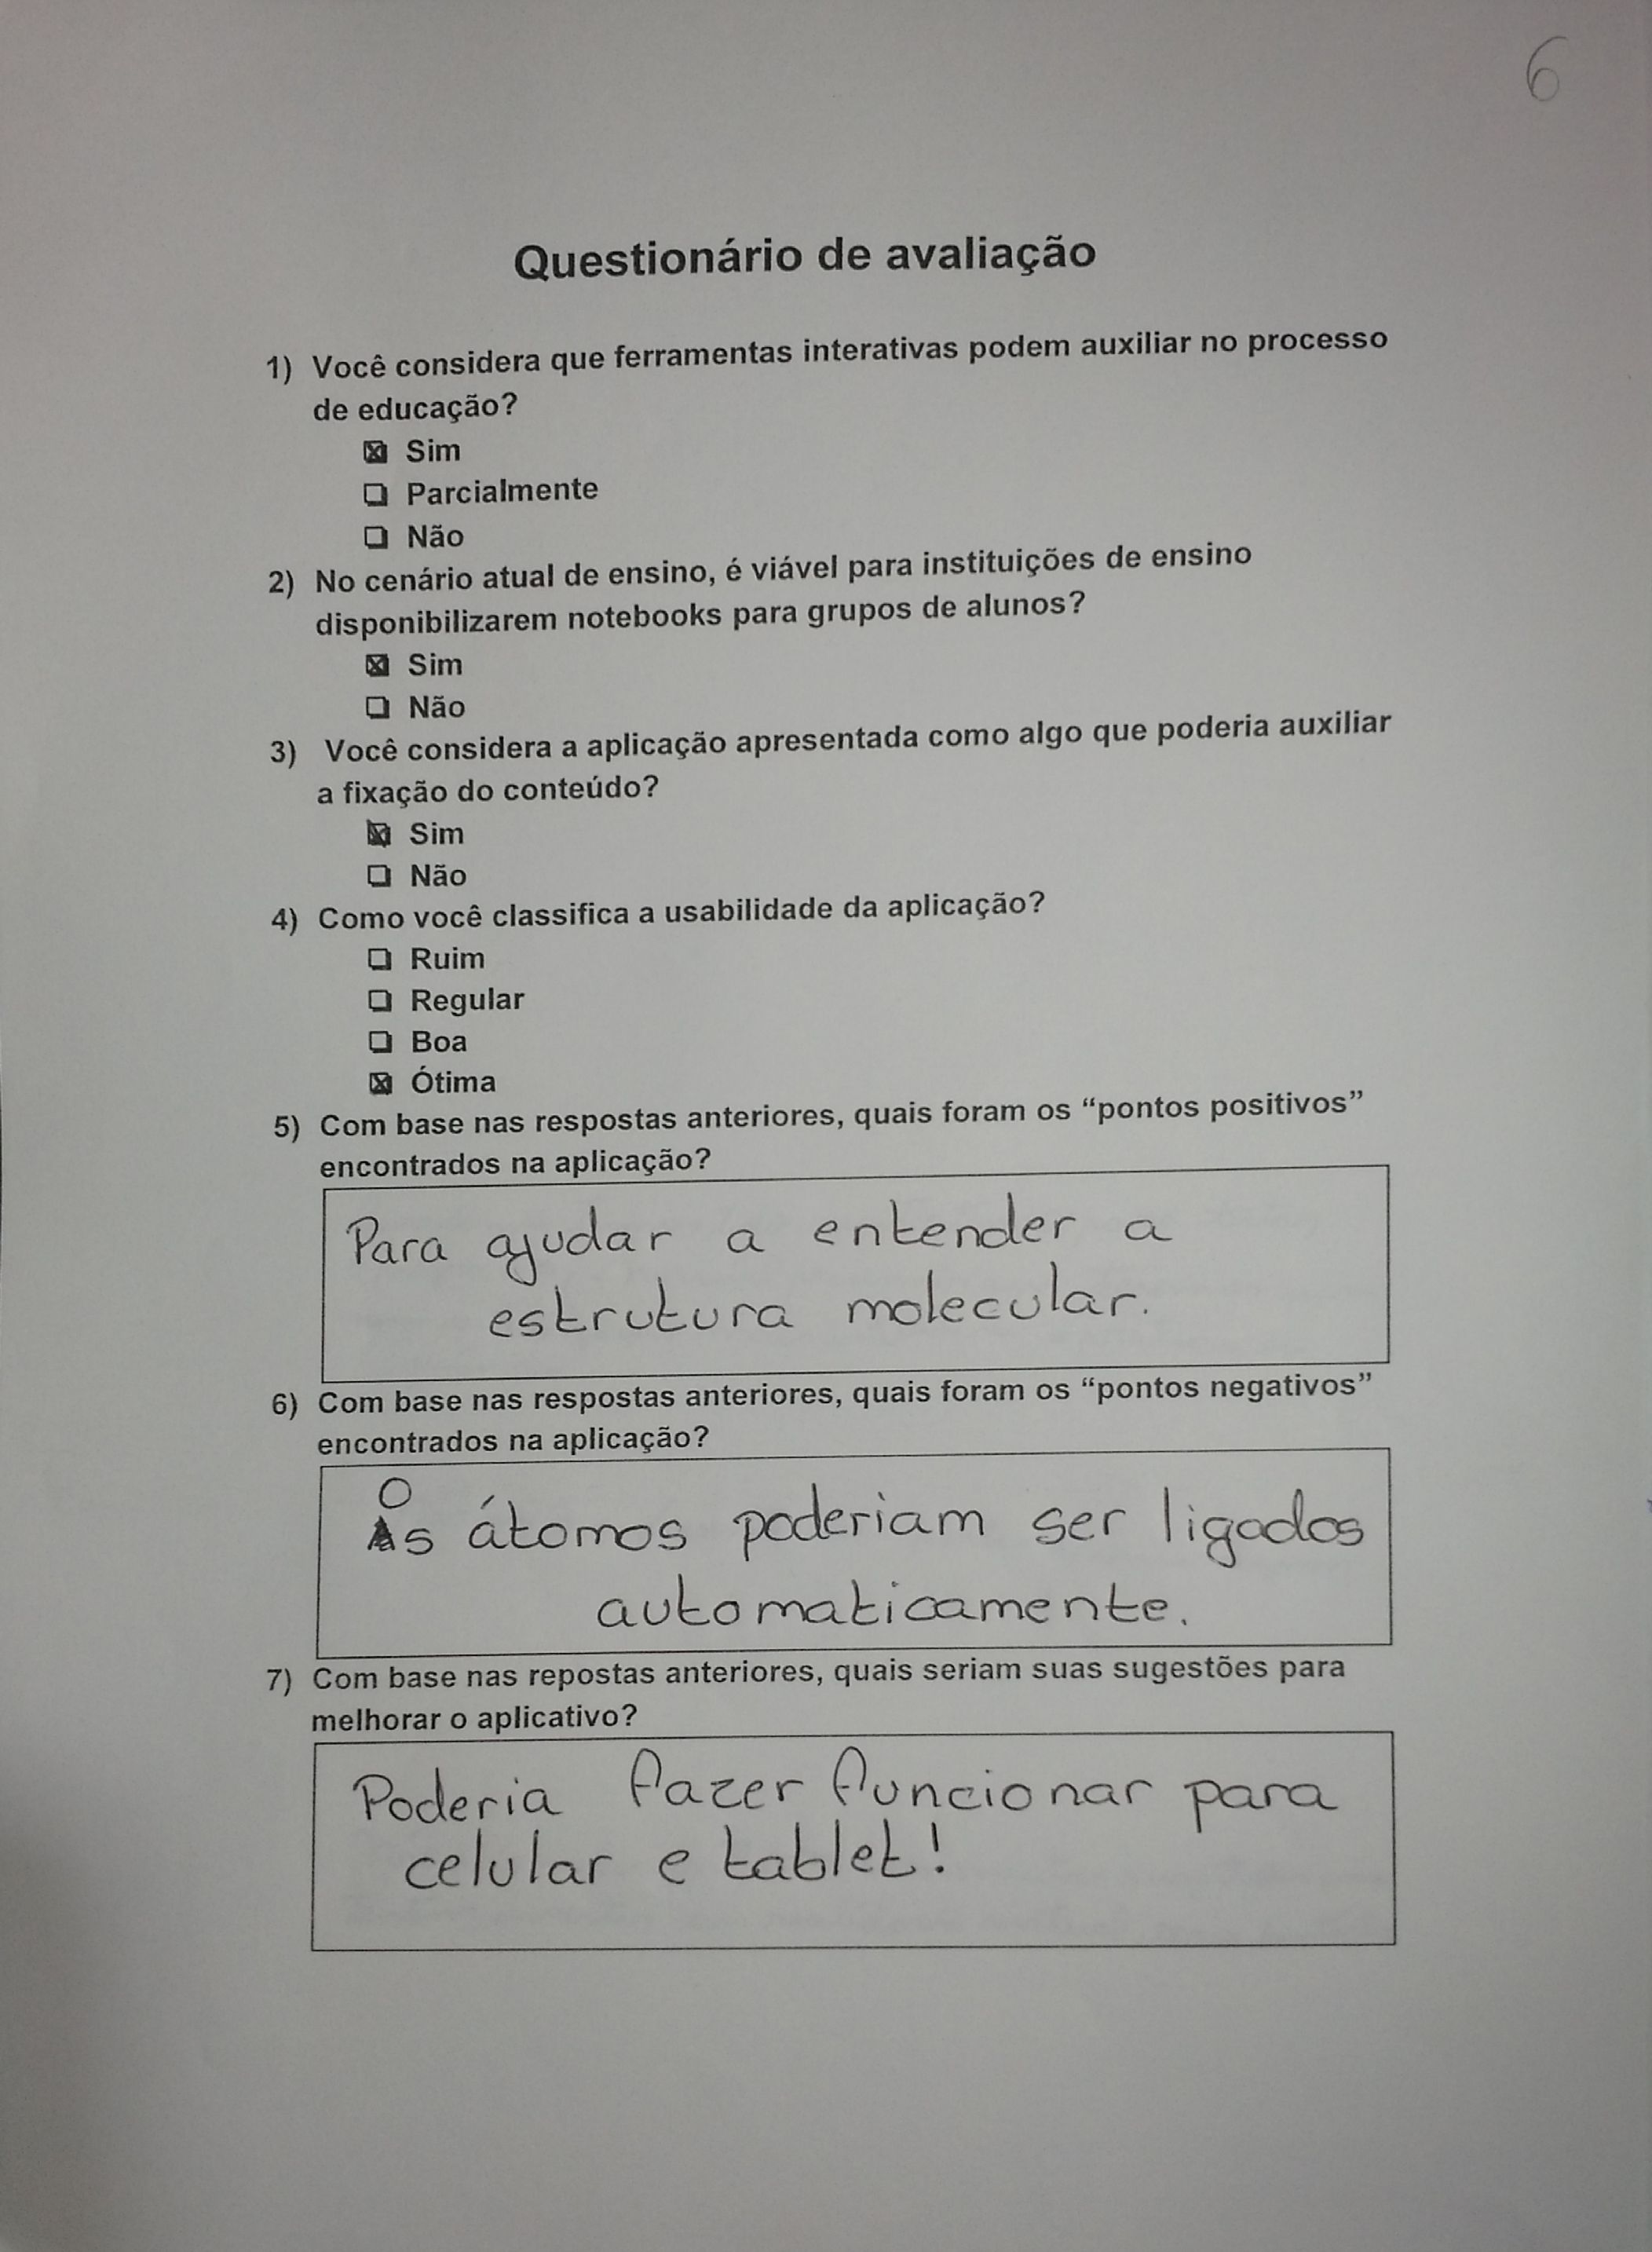 6
Questionário de avaliação
1) Você considera que ferramentas interativas podem auxiliar no processo
de educação?
☒ Sim
☐ Parcialmente
☐ Não
2) No cenário atual de ensino, é viável para instituições de ensino
disponibilizarem notebooks para grupos de alunos?
☒ Sim
☐ Não
3) Você considera a aplicação apresentada como algo que poderia auxiliar
a fixação do conteúdo?
☒ Sim
☐ Não
4) Como você classifica a usabilidade da aplicação?
☐ Ruim
☐ Regular
☐ Boa
☒ Ótima
5) Com base nas respostas anteriores, quais foram os “pontos positivos”
encontrados na aplicação?
Para ajudar a entender a
estrutura molecular.
6) Com base nas respostas anteriores, quais foram os “pontos negativos”
encontrados na aplicação?
Os átomos poderiam ser ligados
automaticamente.
7) Com base nas repostas anteriores, quais seriam suas sugestões para
melhorar o aplicativo?
Poderia fazer funcionar para
celular e tablet!